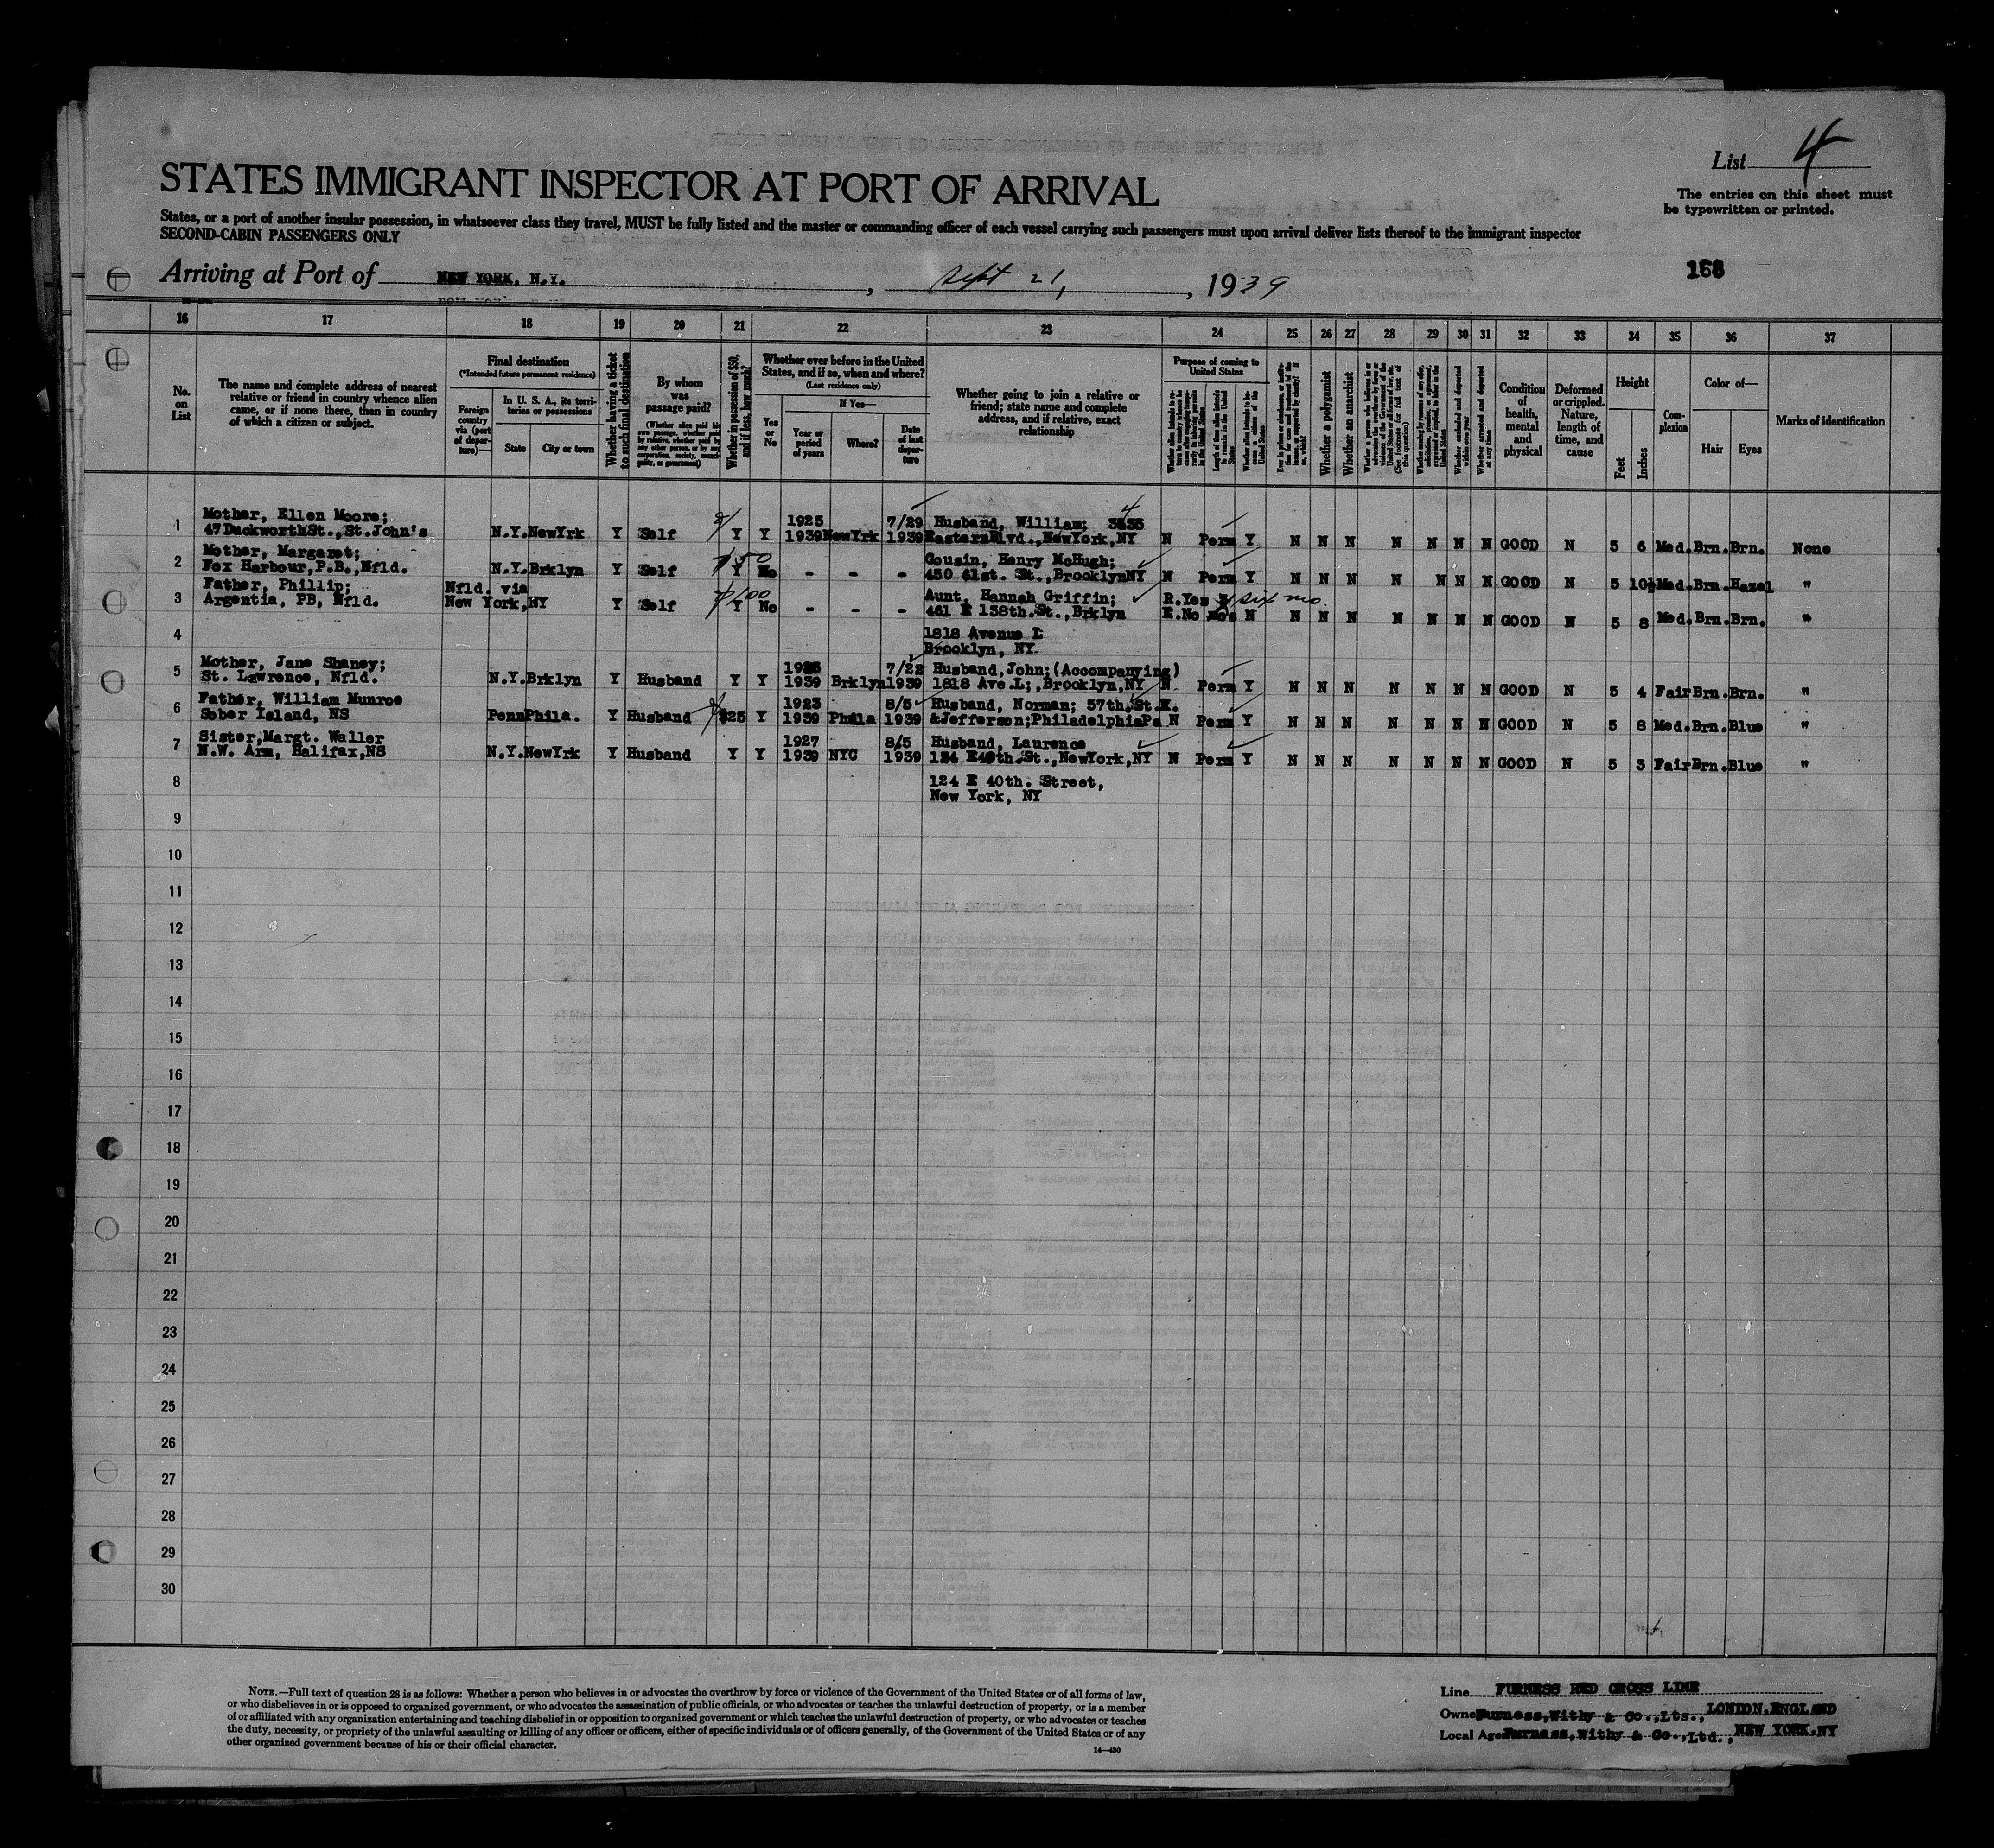 List 4
STATES IMMIGRANT INSPECTOR AT PORT OF ARRIVAL
The entries on this sheet must
be typewritten or printed.
States, or a port of another insular possession, in whatsoever class they travel, MUST be fully listed and the master or commanding officer of each vessel carrying such passengers must upon arrival deliver lists thereof to the immigrant inspector
SECOND-CABIN PASSENGERS ONLY
Arriving at Port of NEW YORK, N.Y. , Sept 21, , 1939
168
16 17 18 19 20 21 22 23 24 25 26 27 28 29 30 31 32 33 34 35 36 37
No. on List
The name and complete address of nearest
relative or friend in country whence alien
came, or if none there, then in country
of which a citizen or subject.
Final destination
(*Intended future permanent residence)
Foreign country via (port of departure)—
In U. S. A., its territories or possessions
State
City or town
Whether having a ticket to such final destination
By whom was passage paid?
(Whether alien paid his own passage, whether paid by relative, whether paid by any other person, or by any corporation, society, municipality, or government)
Whether in possession of $50, and if less, how much?
Whether ever before in the United
States, and if so, when and where?
(Last residence only)
Yes or No
If Yes—
Year or period of years
Where?
Date of last departure
Whether going to join a relative or
friend; state name and complete
address, and if relative, exact
relationship
Purpose of coming to
United States
Length of time alien intends to remain in the United States
Whether alien intends to become a citizen of the United States
Whether a polygamist
Whether an anarchist
Whether arrested and deported at any time
Condition of health, mental and physical
Deformed or crippled. Nature, length of time, and cause
Height
Feet
Inches
Complexion
Color of—
Hair
Eyes
Marks of identification
1 Mother, Ellen Moore;
47DuckworthSt., St.John's N.Y. NewYrk Y Self Y Y 1925 1939 NewYrk 7/29 1939 Husband, William;
EasternBlvd., NewYork, NY N Perm Y N N N N N N N GOOD N 5 6 Med. Brn. Brn. None
2 Mother, Margaret;
Fox Harbour,P.B.,Nfld. N.Y. Brklyn Y Self 50 Y No - - - Cousin, Henry McHugh;
450 61st. St., BrooklynNY N Perm Y N N N N N N N GOOD N 5 10½ Med. Brn. Hazel "
3 Father, Phillip;
Argentia, PB, Nfld. Nfld. via
New York, NY Y Self 100 Y No - - - Aunt, Hannah Griffin;
461 E 138th. St., Brklyn R.Yes six mo.
R.No N N N N N N N N GOOD N 5 8 Med. Brn. Brn. "
4 1818 Avenue L
Brooklyn, NY.
5 Mother, Jane Shaney;
St. Lawrence, Nfld. N.Y. Brklyn Y Husband Y Y 1939 Brklyn 7/22 1939 Husband, John; (Accompanying)
1818 Ave.L;, Brooklyn, NY N Perm Y N N N N N N N GOOD N 5 4 Fair Brn. Brn. "
6 Father, William Munroe
Sober Island, NS Penn Phila. Y Husband $25 Y 1923 1939 Phila 8/5 1939 Husband, Norman; 57th. St.E.
&Jefferson; PhiladelphiaPa N Perm Y N N N N N N N GOOD N 5 8 Med. Brn. Blue "
7 Sister, Margt. Waller
N.W. Arm, Halifax, NS N.Y. NewYrk Y Husband Y Y 1927 1939 NYC 8/5 1939 Husband, Laurence
124 E40th. St., NewYork, NY N Perm Y N N N N N N N GOOD N 5 3 Fair Brn. Blue "
8 124 E 40th. Street,
New York, NY
9
10
11
12
13
14
15
16
17
18
19
20
21
22
23
24
25
26
27
28
29
30
NOTE.—Full text of question 28 is as follows: Whether a person who believes in or advocates the overthrow by force or violence of the Government of the United States or of all forms of law,
or who disbelieves in or is opposed to organized government, or who advocates the assassination of public officials, or who advocates or teaches the unlawful destruction of property, or is a member
of or affiliated with any organization entertaining and teaching disbelief in or opposition to organized government or which teaches the unlawful destruction of property, or who advocates or teaches
the duty, necessity, or propriety of the unlawful assaulting or killing of any officer or officers, either of specific individuals or of officers generally, of the Government of the United States or of any
other organized government because of his or their official character.
14—430
Line FURNESS RED CROSS LINE
Owner Furness, Withy & Co., Lts., LONDON, ENGLAND
Local Agent Furness, Withy & Co., Ltd., NEW YORK, NY